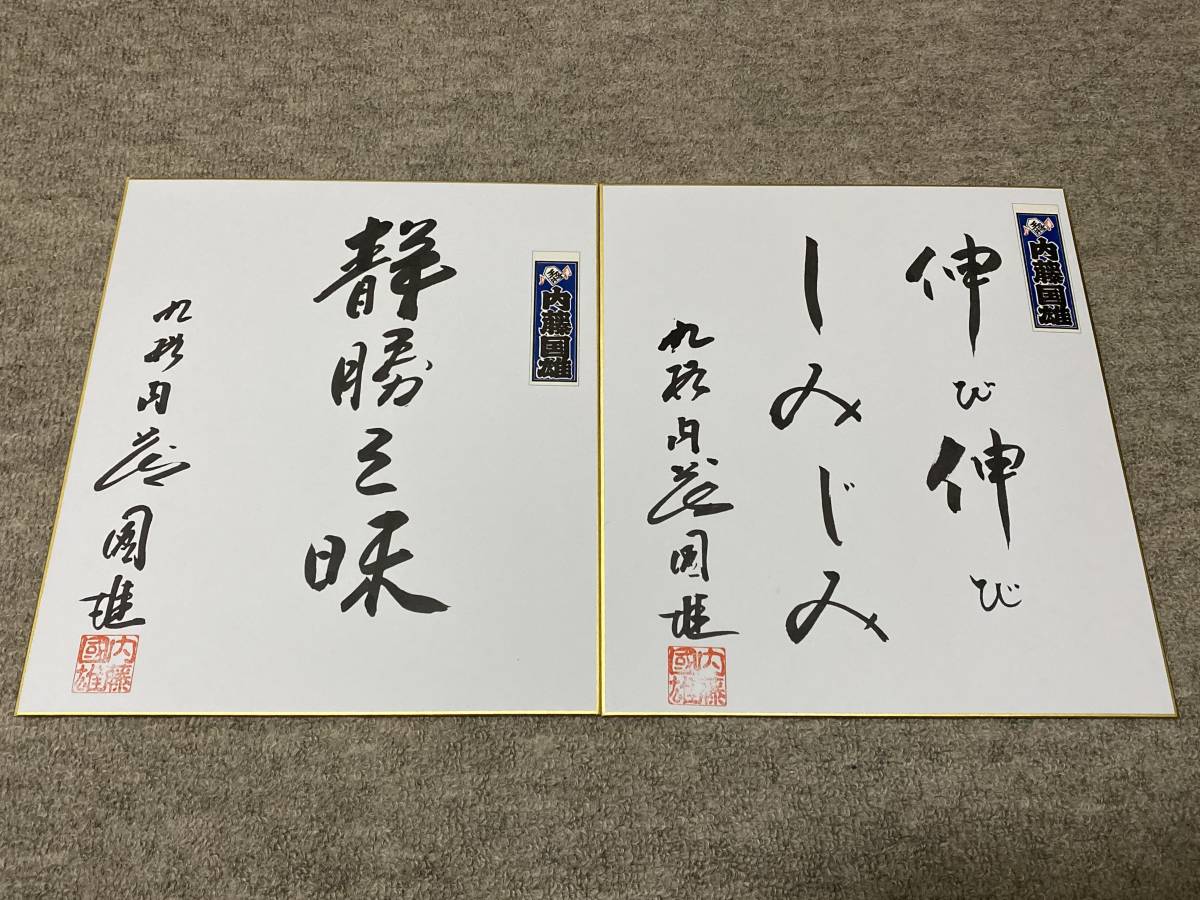 内藤国雄
伸び伸び
しみじみ
九段内藤國雄
内藤國雄
内藤国雄
静勝三昧
九段内藤國雄
内藤國雄